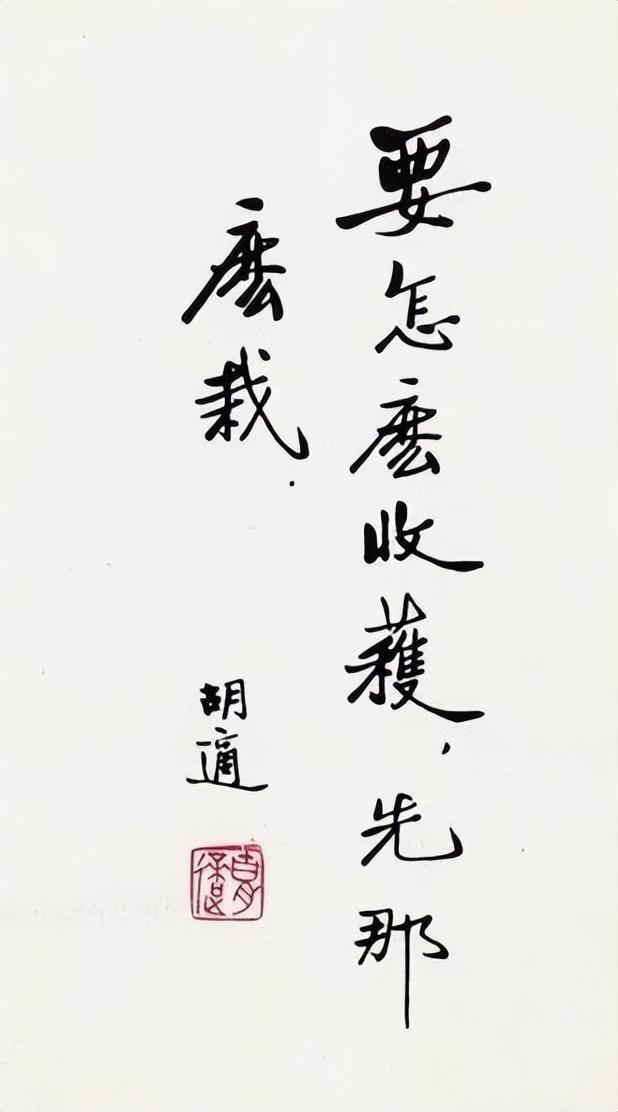 要怎麽收穫，先那
麽栽.
胡適